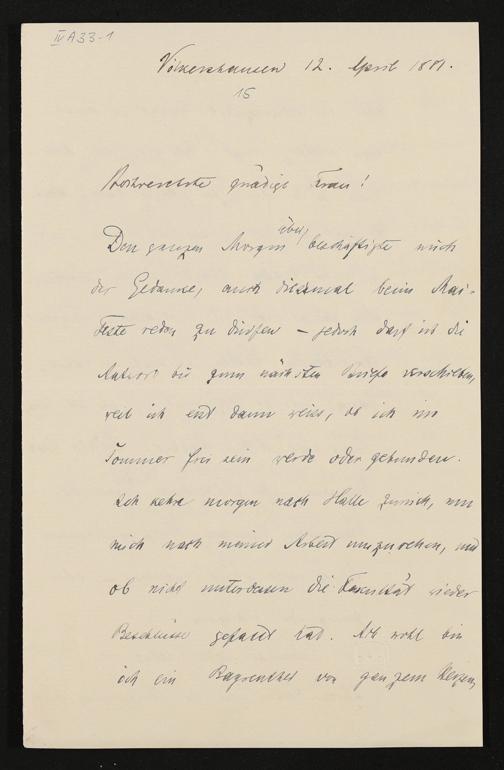 IV A 33-1
Völkershausen 12. April 1881.
15
Hochverehrte gnädige Frau!
Den ganzen Morgen über beschäftigte mich
der Gedanke, auch diesmal beim Mai-
Feste reden zu dürfen – jedoch darf ich die
Antwort bis zum nächsten Briefe verschieben,
weil ich erst dann weiss, ob ich im
Sommer frei sein werde oder gebunden.
Ich kehre morgen nach Halle zurück, um
mich nach meiner Arbeit umzusehen, und
ob nicht unterdessen die Fakultät wieder
Beschlüsse gefasst hat. Ach wohl bin
ich ein Bayreuther von ganzem Herzen,